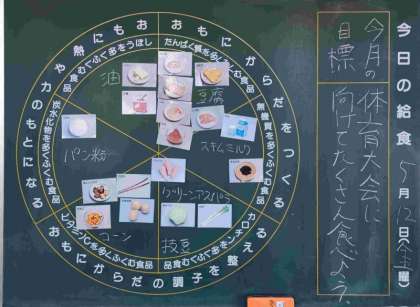 今日の給食 5月12日(金曜)
今月の目標
体育大会に
向けてたくさん食べよう
おもにからだをつくる
おもにからだの調子を整える
おもに熱や力のもとになる
たんぱく質を多くふくむ食品
無機質を多くふくむ食品
カロチンを多くふくむ食品
ビタミンCを多くふくむ食品
炭水化物を多くふくむ食品
しぼうを多くふくむ食品
油
豆腐
スキムミルク
パン粉
グリーンアスパラ
コーン
枝豆